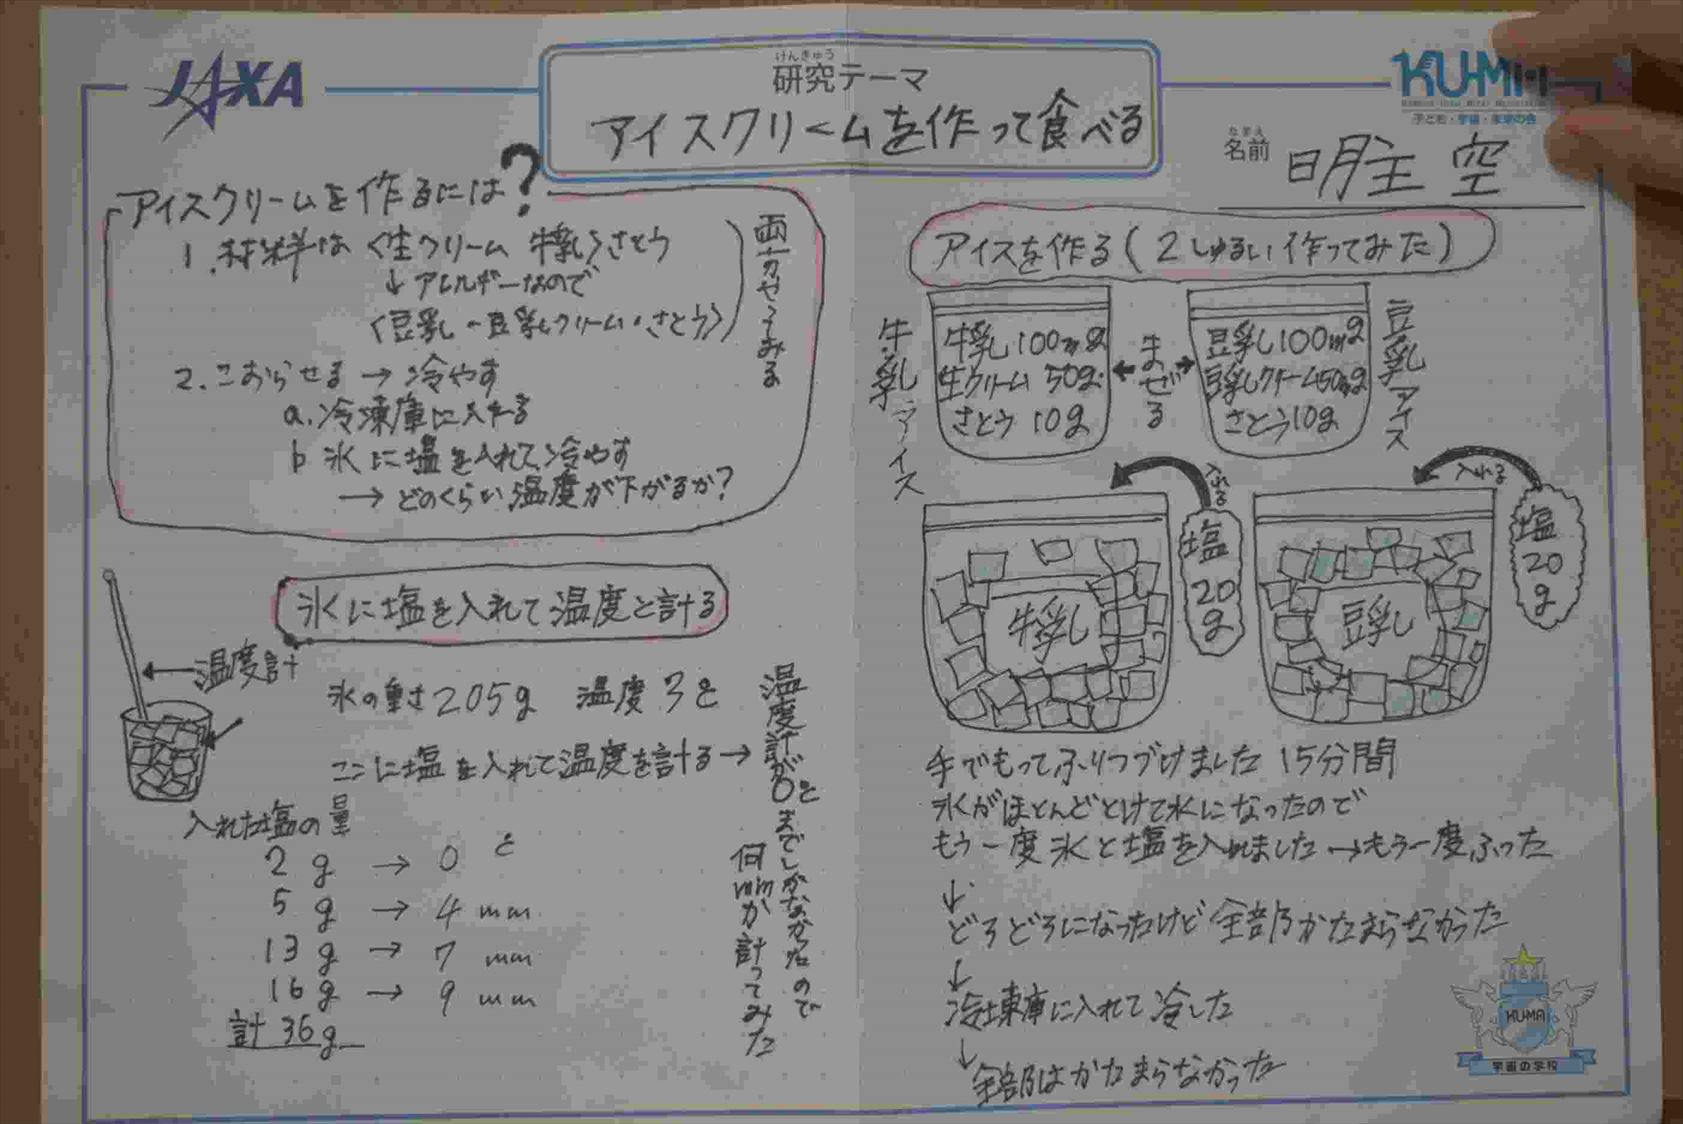 JAXA
けんきゅう
研究テーマ
アイスクリームを作って食べる
KUMA
子ども・宇宙・未来の会
なまえ
名前
明主 空
アイスクリームを作るには?
1.材料は〈生クリーム 牛乳〉さとう
↓アレルギーなので
〈豆乳・豆乳クリーム・さとう〉
両方やってみる
2.こおらせる→冷やす
a.冷凍庫に入れる
b 氷に塩を入れて冷やす
→どのくらい温度が下がるか?
氷に塩を入れて温度と計る
←温度計
氷の重さ205g 温度3と
ここに塩を入れて温度を計る→
温度計が0とまでしかなかったので
何mmか計ってみた
入れた塩の量
2g → 0 と
5g → 4 mm
13g → 7 mm
16g → 9 mm
計 36g
アイスを作る(2しゅるい作ってみた)
牛乳アイス
牛乳100mg
生クリーム 50g
さとう 10g
←まぜる→
豆乳100mg
豆乳クリーム50mg
さとう10g
豆乳アイス
入れる
塩20g
牛乳
入れる
塩20g
豆乳
手でもってふりつづけました 15分間
氷がほとんどとけて水になったので
もう一度氷と塩を入れました→もう一度ふった
↓
どろどろになったけど全部かたまらなかった
↓
冷凍庫に入れて冷した
↓
全部はかたまらなかった
KUMA
宇宙の学校